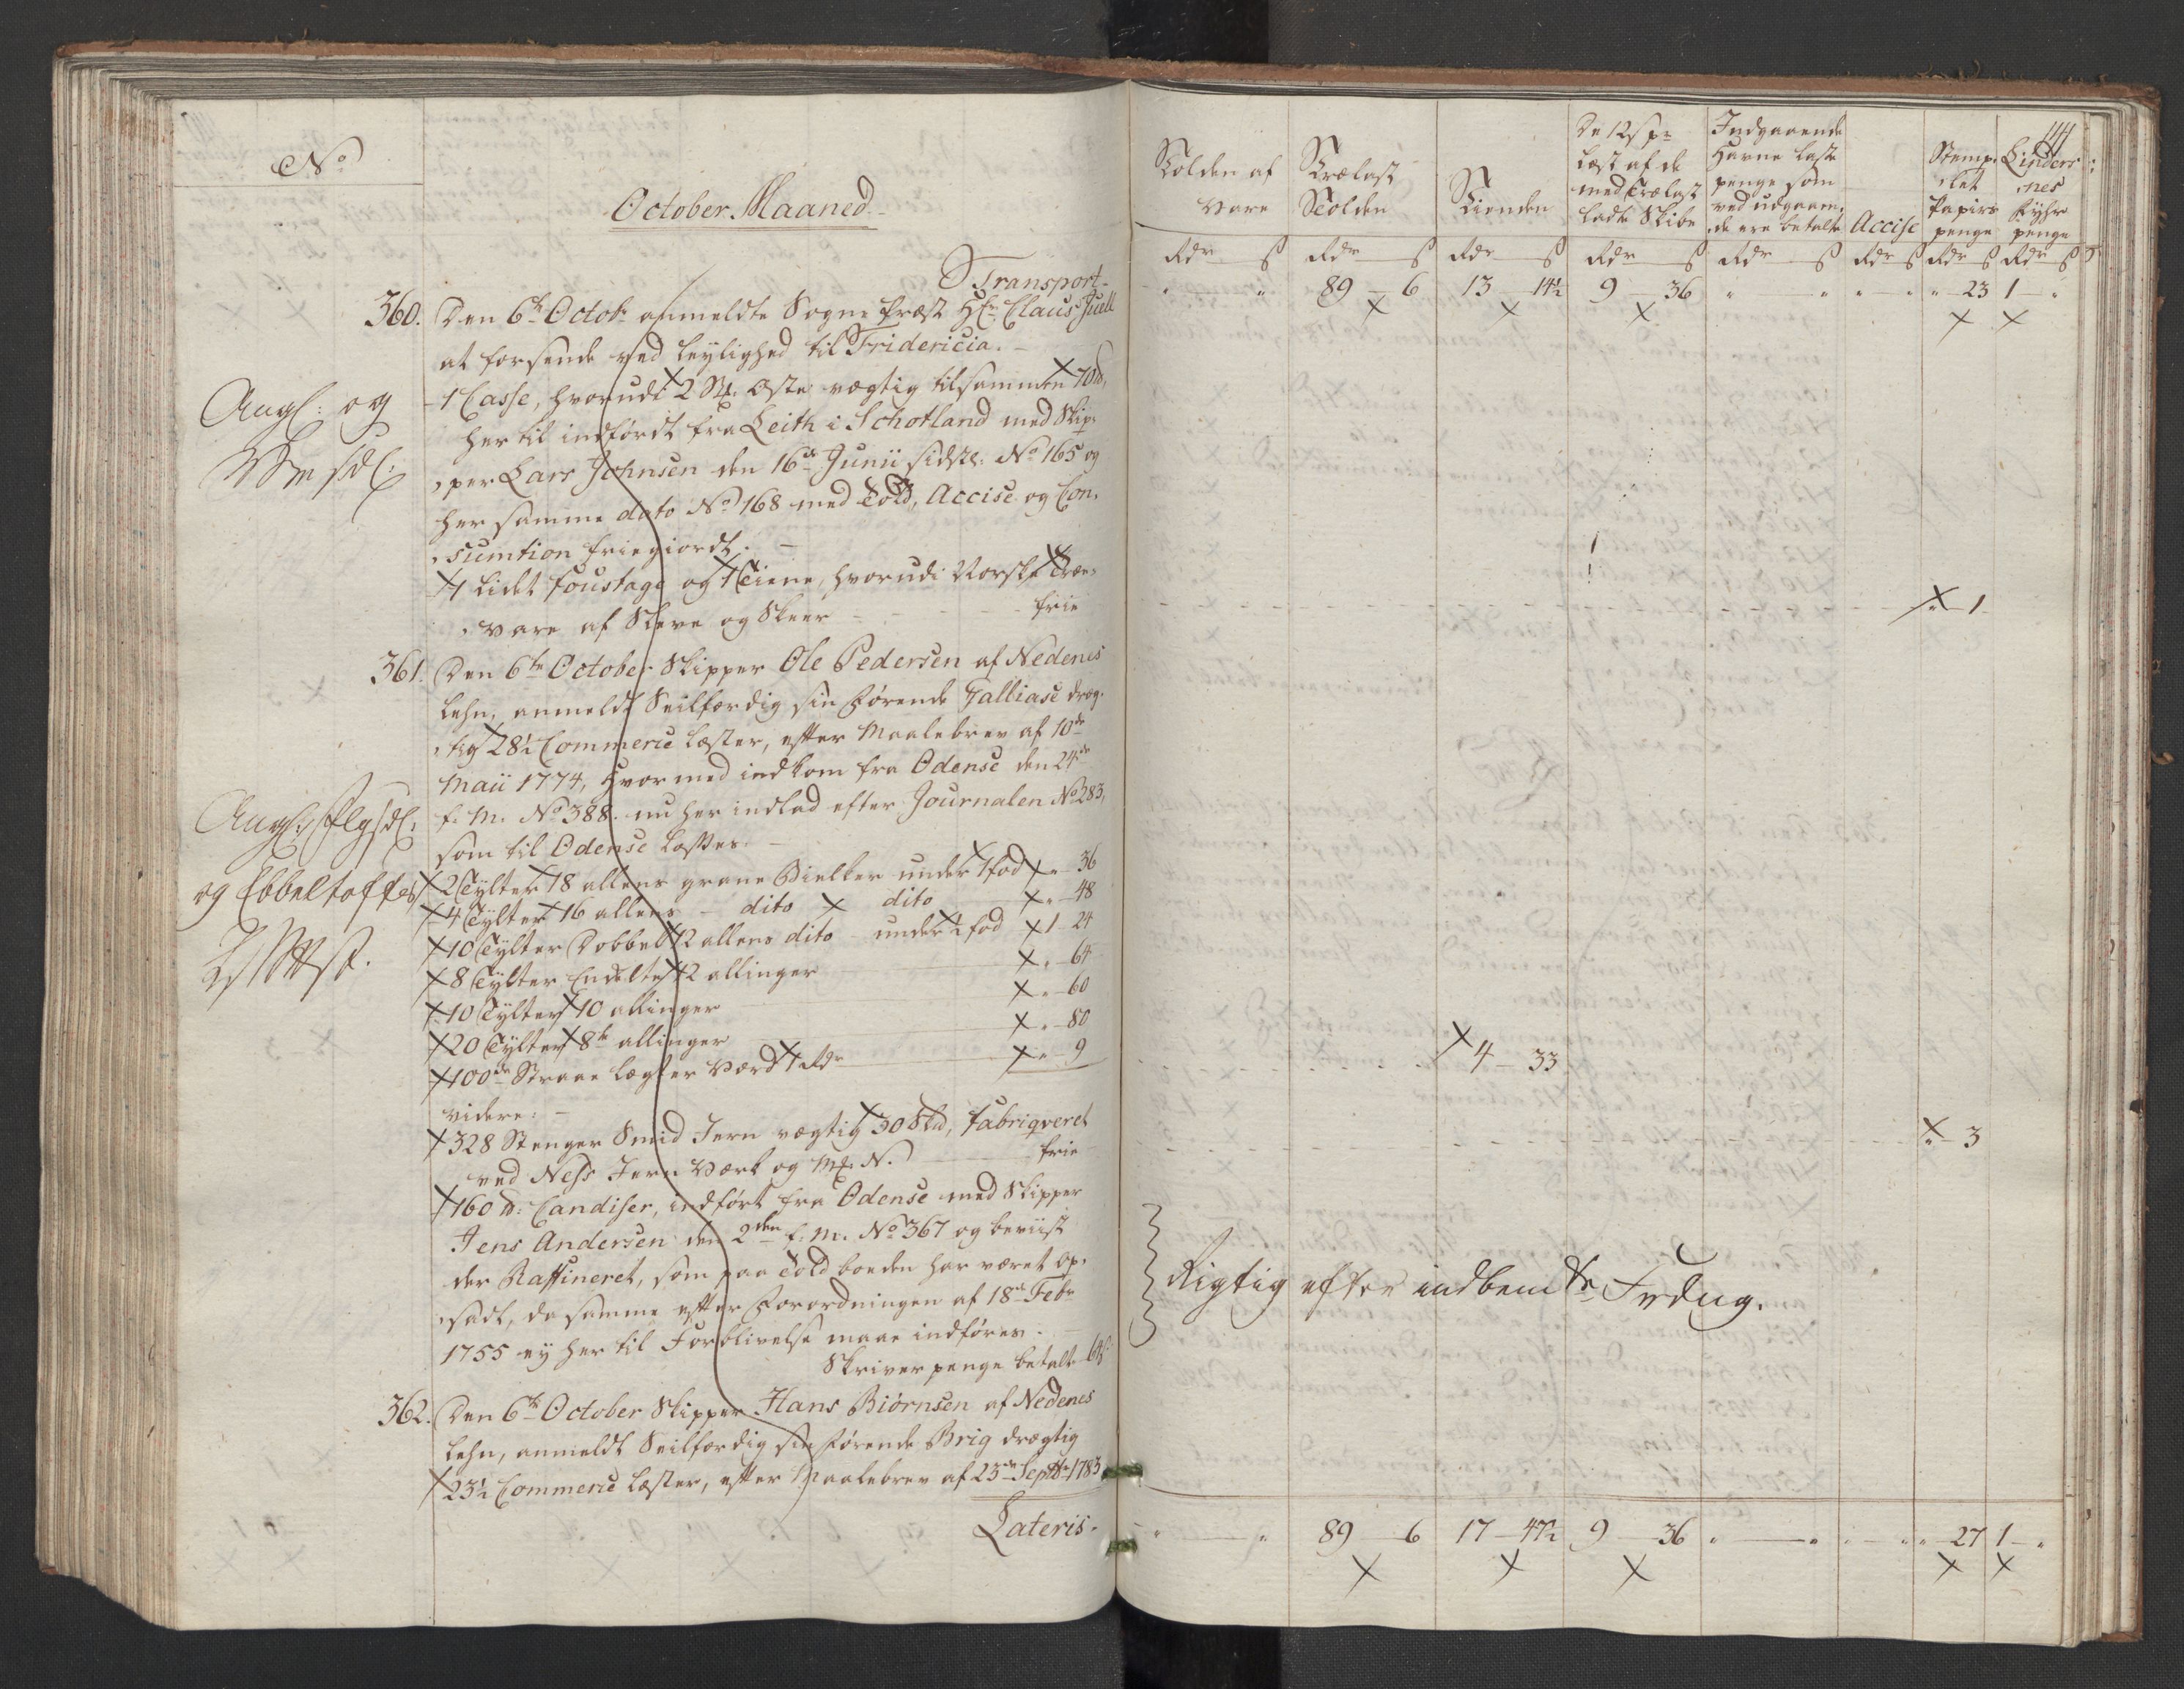 No
October Maaned
Transport
360. Den 6te Octobr anmeldte Sogne Præst Hr Claus Juell
at forsende ved leylighed til Fridericia.
1 Casse, hvorudi 2 St. Oste vægtig tilsammen 70 ℔,
her til indført fra Leith i Schotland med Skip-
per Lars Johnsen den 16de Junii sidstl. No 165 og
her samme dato No 168 med Told, Accise og Con-
sumtion friegiordt.
1 lidet foustage og 1 Teiene, hvorudi Norske Træe-
vare af Skeve og Skeer frie
361. Den 6te October Skipper Ole Pedersen af Nedenes
Lehn, anmeldt Seilfærdig sin Førende Galliase dræg-
tig 28½ Commerce Læster, efter Maalebrev af 10de
Maii 1774, Hvormed indkom fra Odense den 24de
f. M. No 388. nu her indlad efter Journalen No 283,
som til Odense Losses.
2 Tylter 18 allens grane Bielker under 1 fod " 36
4 Tylter 16 allens dito dito " 48
10 Tylter Dobbelt 12 allens dito under ½ fod 1 24
8 Tylter Enckelte 12 allinger " 64
10 Tylter 10 allinger " 60
20 Tylter 8te allinger " 80
100de Straae lægter Værd 1 Rdr " 9
videre:
328 Stenger Smid Jern vægtig 30 Skd, fabriqveret
ved Ness Jern Værk og Mk. N. frie
160 ℔: Candiser, indført fra Odense med Skipper
Jens Andersen den 2den f. M. No 367 og beviist
der Raffineret, som paa Toldboeden har været op-
sadt, da samme efter Forordningen af 18de Febr
1755 ey her til Forblivelse maae indføres.
Skriver penge betalt 64 ß
362. Den 6te October Skipper Hans Biørnsen af Nedenes
Lehn, anmeldt Seilfærdig sin Førende Brig drægtig
23½ Commerce Læster, efter Maalebrev af 23de Septbr 1783
Lateris.
Angl: og
Angl:
og Ebbeltofftes
141
Tolden af Vare
Trælast Tolden
Tienden
De 12 ß pr Læst af de med Trælast ladte Skibe
Indgaaende Havne Laste penge som ved udgaaen-de ere betalte
Accise
Stemp-let Papirs penge
Linders-nes Fyhr penge
Rdr ß Rdr ß Rdr ß Rdr ß Rdr ß Rdr ß Rdr ß Rdr ß
" " 89 6 13 14½ 9 36 " " " " " 23 1 "
" 1
4 33
" 3
Rigtig efter
" " 89 6 17 47½ 9 36 " " " " " 27 1 "